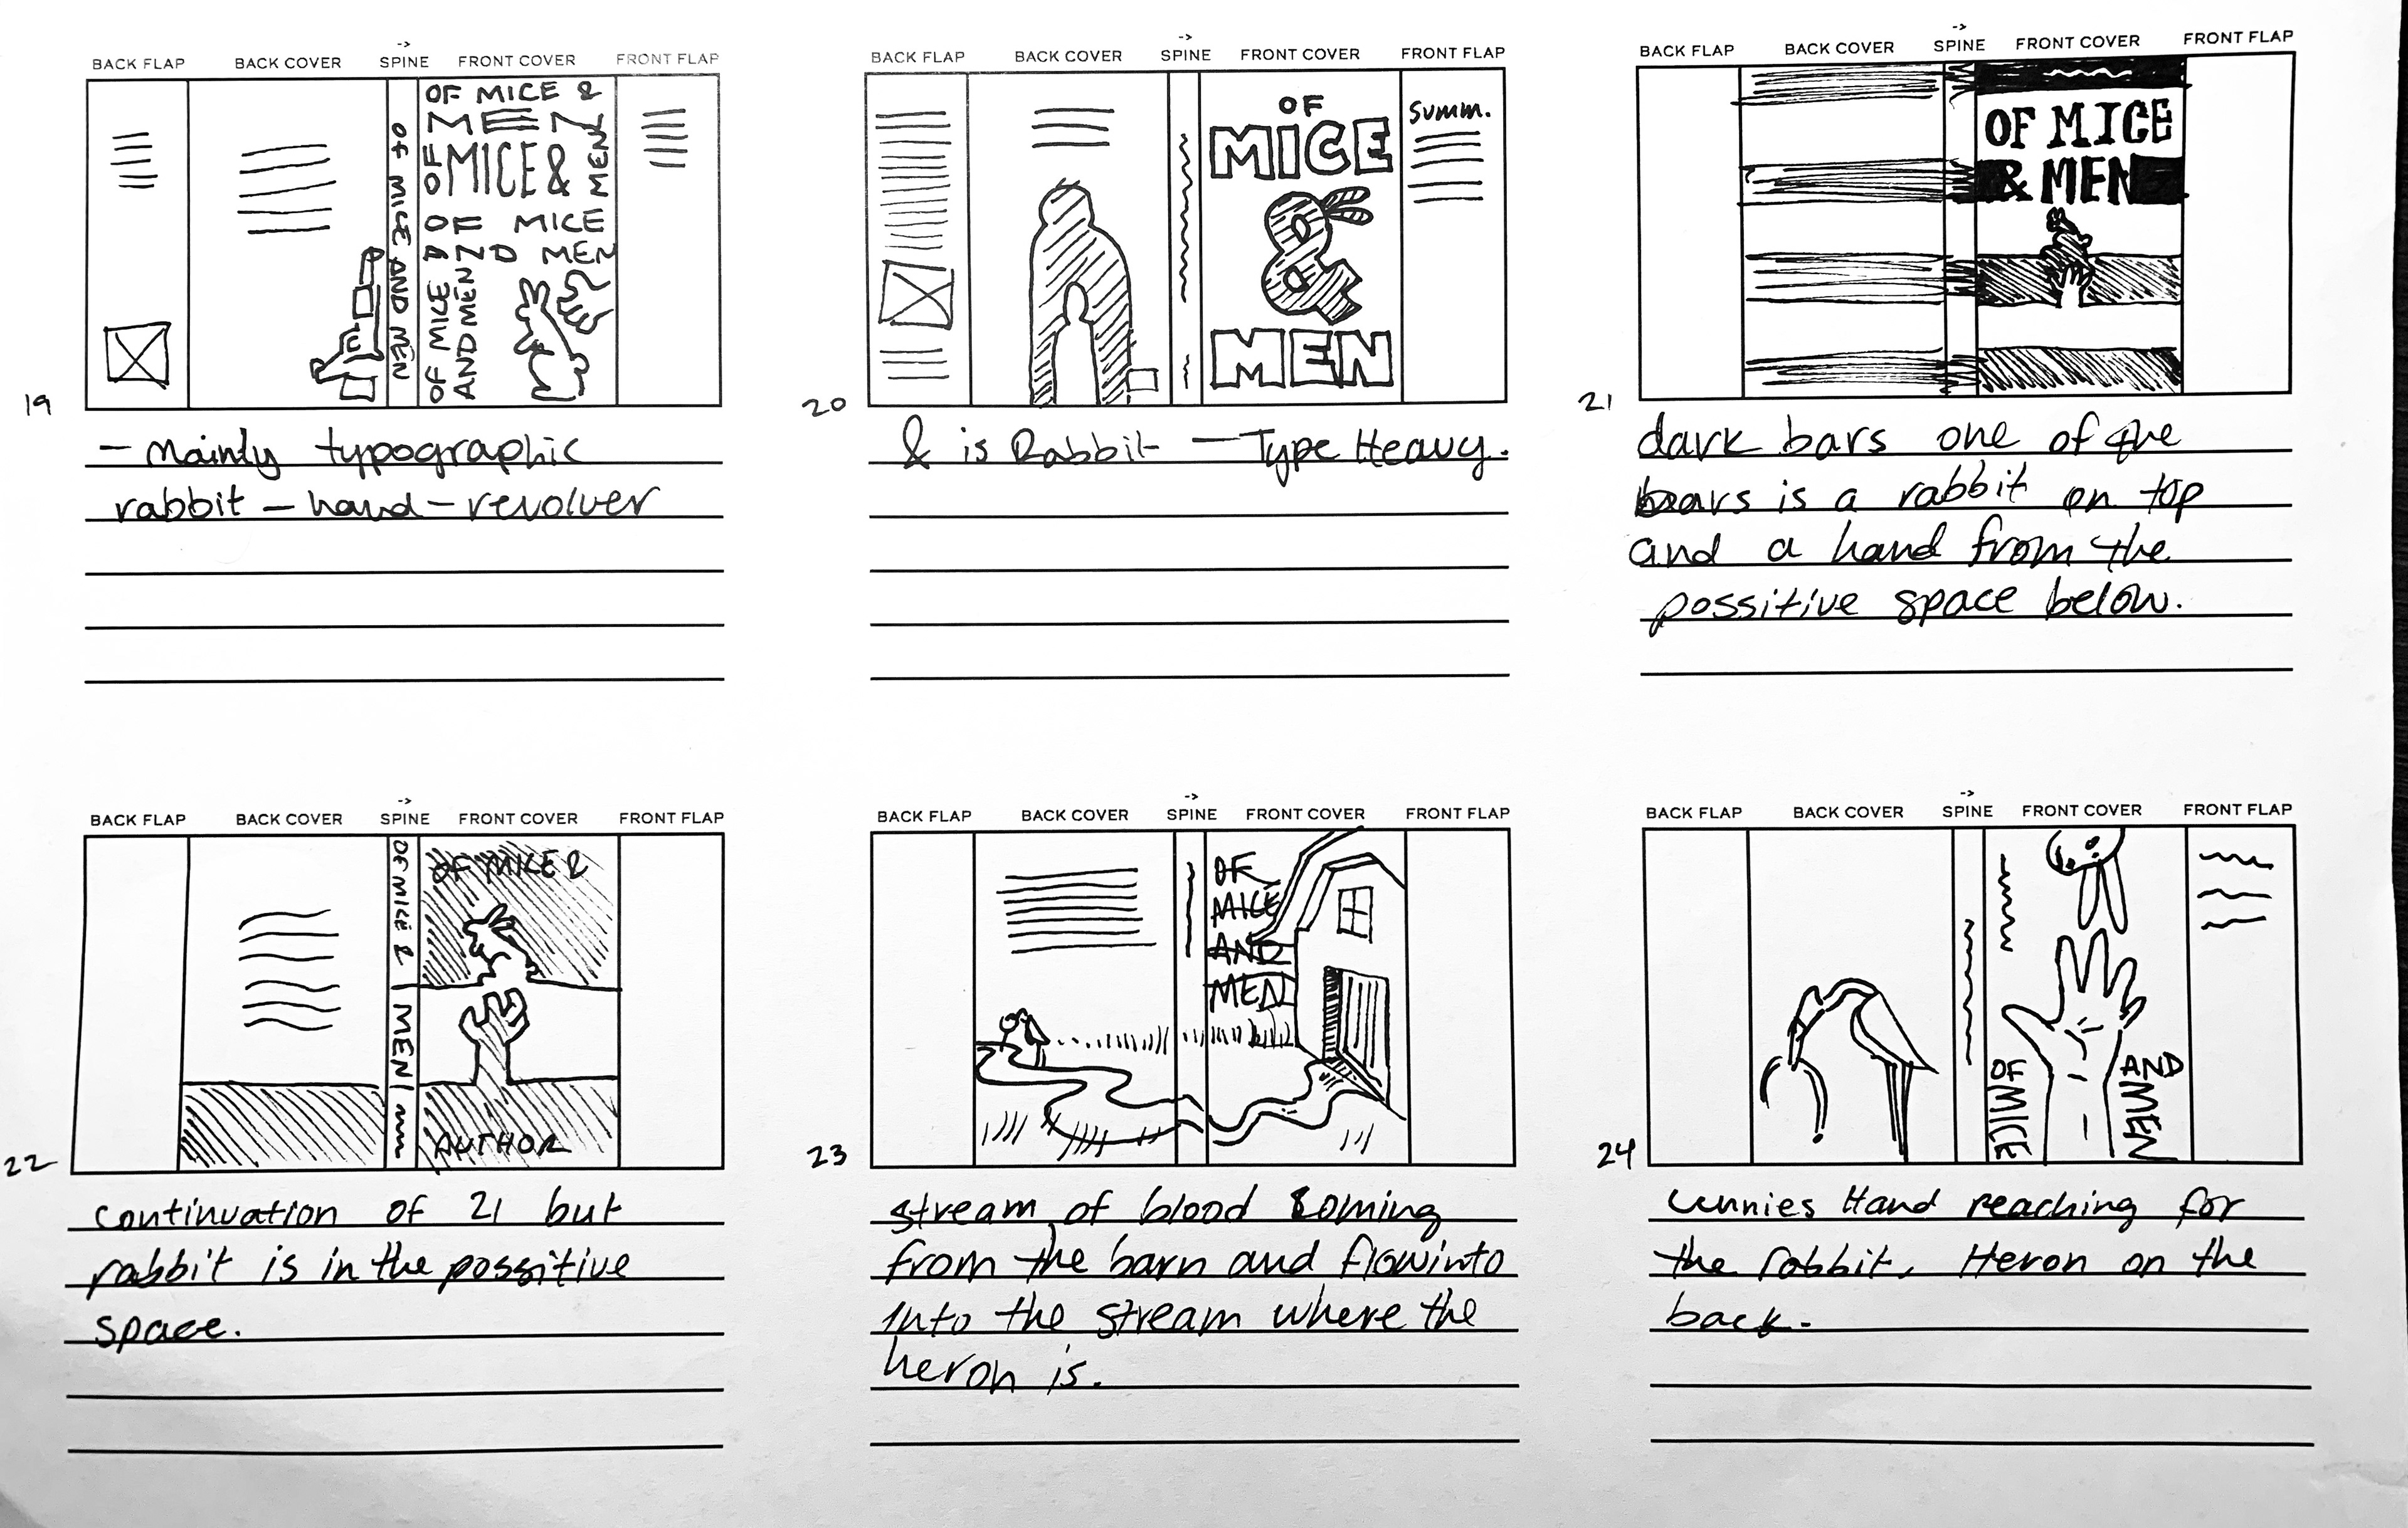 ->
BACK FLAP BACK COVER SPINE FRONT COVER FRONT FLAP
OF MICE &
MEN
OF MICE & MEN
OF MICE
AND MEN
OF MICE
AND MEN
OF MICE AND MEN
19
- Mainly typographic
rabbit - hand - revolver
->
BACK FLAP BACK COVER SPINE FRONT COVER FRONT FLAP
OF
MICE
&
MEN
Summ.
20
& is Rabbit - Type Heavy.
->
BACK FLAP BACK COVER SPINE FRONT COVER FRONT FLAP
OF MICE
& MEN
21
dark bars one of the
bars is a rabbit on top
and a hand from the
possitive space below.
->
BACK FLAP BACK COVER SPINE FRONT COVER FRONT FLAP
OF MICE & MEN
OF MICE &
AUTHOR
22
continuation of 21 but
rabbit is in the possitive
space.
->
BACK FLAP BACK COVER SPINE FRONT COVER FRONT FLAP
OF
MICE
AND
MEN
23
stream of blood coming
from the barn and flowinto
Into the stream where the
heron is.
->
BACK FLAP BACK COVER SPINE FRONT COVER FRONT FLAP
OF
MICE
AND
MEN
24
Lennies Hand reaching for
the rabbit. Heron on the
back.